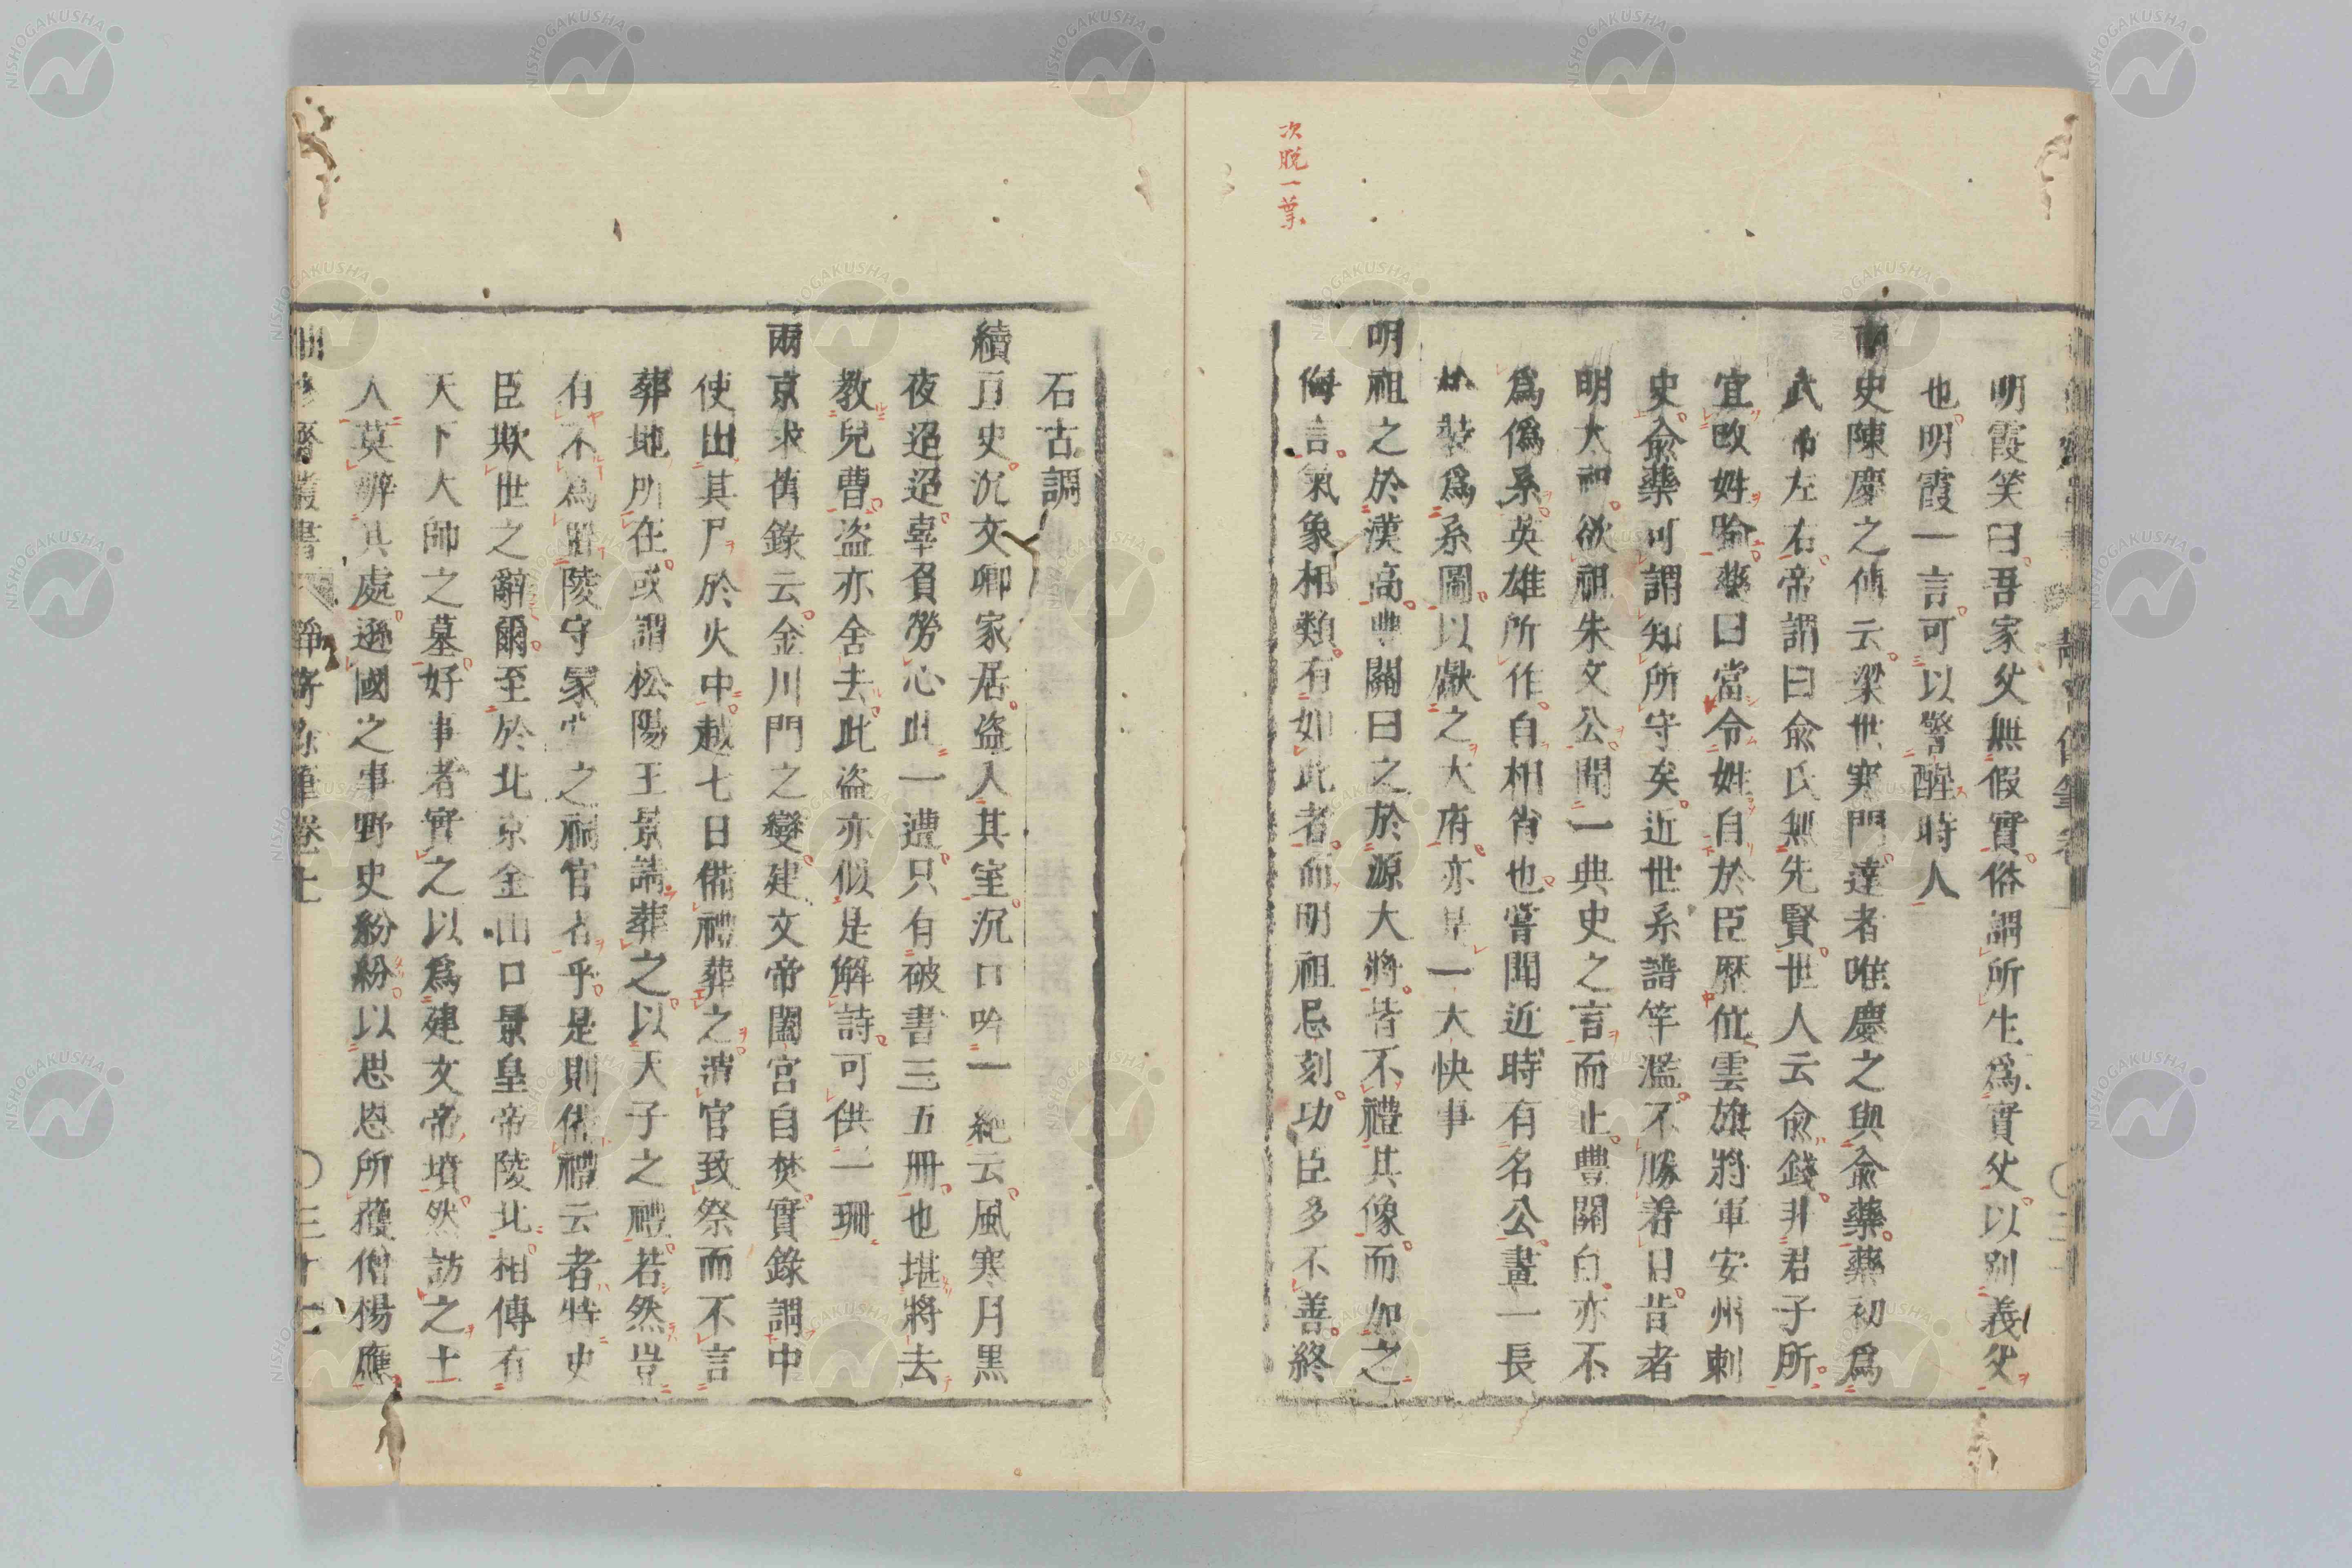 次脱一葉
明霞笑曰吾家父無假實俗謂所生爲實父以別義父
也明霞一言可以警醒時人
南史陳慶之傳云梁世寒門達者唯慶之與兪藥藥初爲
武帝左右帝謂曰兪氏無先賢世人云兪錢非君子所
宜改姓喩藥曰當令姓自於臣歷位雲旗將軍安州刺
史兪藥可謂知所守矣近世系譜竿濫不勝着目昔者
明太祖欲祖朱文公聞一典史之言而止豐關白亦不
爲僞系英雄所作自相肖也嘗聞近時有名公畫一長
裝爲系圖以獻之大府亦是一大快事
明祖之於漢高豐關白之於源大將皆不禮其像而加之
侮言氣象相類有如此者而明祖忌刻功臣多不善終
石古調
續耳史沉文卿家居盜入其室沉口吟一絶云風寒月黑
夜迢迢辜負勞心此一遭只有破書三五冊也堪將去
敎兒曹盜亦舍去此盜亦似是解詩可供一珊
兩京求舊錄云金川門之變建文帝闔宮自焚實錄謂中
使出其尸於火中越七日備禮葬之遣官致祭而不言
葬地所在或謂松陽王景請葬之以天子之禮若然豈
有不爲置陵守冢之祠官者乎是則備禮云者特史
臣欺世之辭爾至於北京金山口景皇帝陵北相傳有
天下大師之墓好事者實之以爲建文帝墳然訪之土
人莫辨其處遜國之事野史紛紛以思恩所獲僧楊應